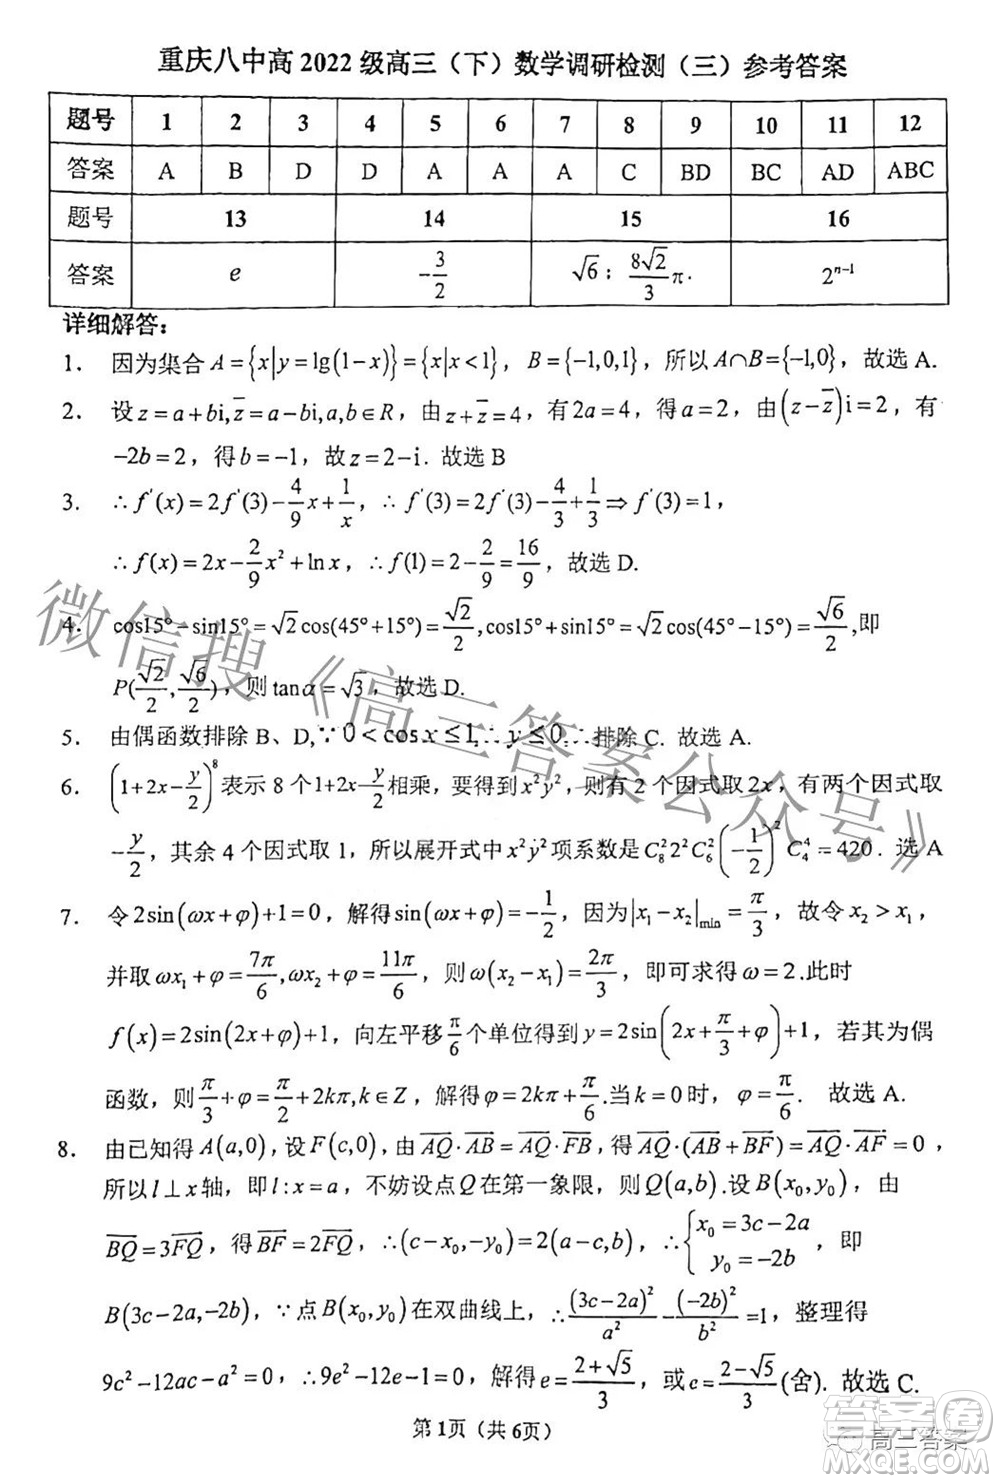 重庆八中高 2022 级高三（下）数学调研检测（三）参考答案
题号 1 2 3 4 5 6 7 8 9 10 11 12
答案 A B D D A A A C BD BC AD ABC
题号 13 14 15 16
答案 e -3/2 √6；8√2/3 π. 2^{n-1}
详细解答：
1. 因为集合 A={x|y=lg(1-x)}={x|x<1}，B={-1,0,1}，所以 A∩B={-1,0}，故选 A.
2. 设 z=a+bi,z̄=a-bi,a,b∈R，由 z+z̄=4，有 2a=4，得 a=2，由 (z-z̄)i=2，有
-2b=2，得 b=-1，故 z=2-i. 故选 B
3. ∴f'(x)=2f'(3)-4/9 x+1/x，∴f'(3)=2f'(3)-4/3+1/3⇒f'(3)=1，
∴f(x)=2x-2/9 x²+ln x，∴f(1)=2-2/9=16/9，故选 D.
4. cos15°-sin15°=√2cos(45°+15°)=√2/2,cos15°+sin15°=√2cos(45°-15°)=√6/2,即
P(√2/2,√6/2)，则 tanα=√3，故选 D.
5. 由偶函数排除 B、D,∵0<cosx≤1,∴y≤0,∴排除 C. 故选 A.
6. (1+2x-y/2)^8 表示 8 个 1+2x-y/2 相乘，要得到 x²y²，则有 2 个因式取 2x，有两个因式取
-y/2，其余 4 个因式取 1，所以展开式中 x²y² 项系数是 C_8^2 2² C_6^2 (-1/2)² C_4^4=420. 选 A
7. 令 2sin(ωx+φ)+1=0，解得 sin(ωx+φ)=-1/2，因为 |x₁-x₂|_min=π/3，故令 x₂>x₁，
并取 ωx₁+φ=7π/6,ωx₂+φ=11π/6，则 ω(x₂-x₁)=2π/3，即可求得 ω=2.此时
f(x)=2sin(2x+φ)+1，向左平移 π/6 个单位得到 y=2sin(2x+π/3+φ)+1，若其为偶
函数，则 π/3+φ=π/2+2kπ,k∈Z，解得 φ=2kπ+π/6.当 k=0 时，φ=π/6. 故选 A
8. 由已知得 A(a,0),设 F(c,0)，由 AQ·AB=AQ·FB，得 AQ·(AB+BF)=AQ·AF=0，
所以 l⊥x 轴，即 l:x=a，不妨设点 Q 在第一象限，则 Q(a,b).设 B(x₀,y₀)，由
BQ=3FQ，得 BF=2FQ，∴(c-x₀,-y₀)=2(a-c,b)，∴{x₀=3c-2a y₀=-2b，即
B(3c-2a,-2b)，∵点 B(x₀,y₀) 在双曲线上，∴(3c-2a)²/a²-(-2b)²/b²=1，整理得
9c²-12ac-a²=0，∴9e²-12e-1=0，解得 e=2+√5/3，或 e=2-√5/3(舍). 故选 C.
第 1页（共 6页）
微信搜《高三答案公众号》
答案圈
高三答案